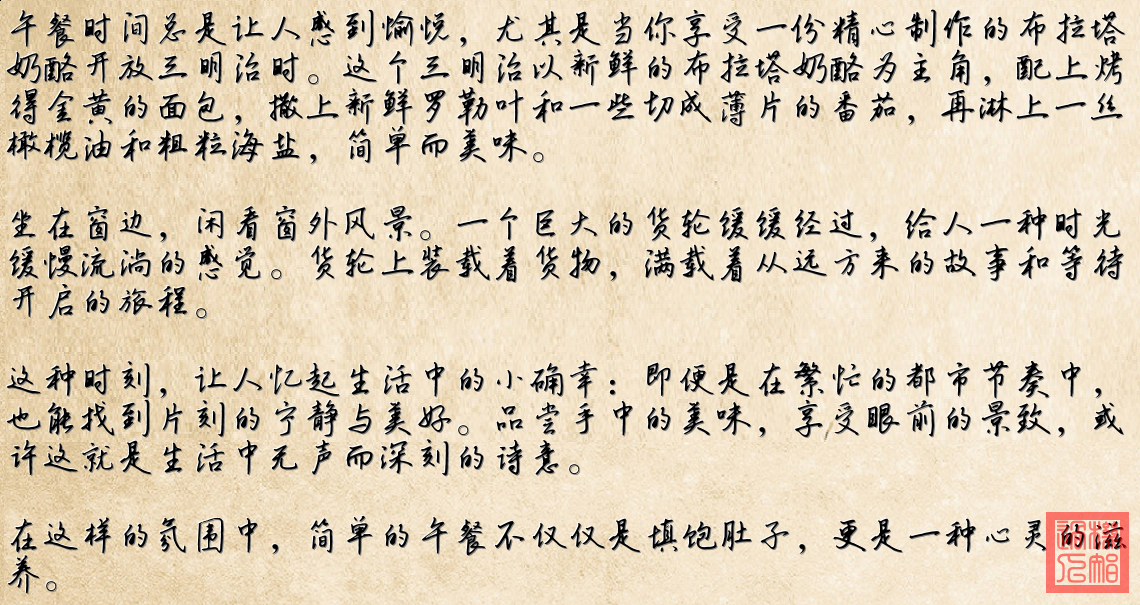 午餐时间总是让人感到愉悦，尤其是当你享受一份精心制作的布拉塔
奶酪开放三明治时。这个三明治以新鲜的布拉塔奶酪为主角，配上烤
得金黄的面包，撒上新鲜罗勒叶和一些切成薄片的番茄，再淋上一丝
橄榄油和粗粒海盐，简单而美味。
坐在窗边，闲看窗外风景。一个巨大的货轮缓缓经过，给人一种时光
缓慢流淌的感觉。货轮上装载着货物，满载着从远方来的故事和等待
开启的旅程。
这种时刻，让人忆起生活中的小确幸：即便是在繁忙的都市节奏中，
也能找到片刻的宁静与美好。品尝手中的美味，享受眼前的景致，或
许这就是生活中无声而深刻的诗意。
在这样的氛围中，简单的午餐不仅仅是填饱肚子，更是一种心灵的滋
养。